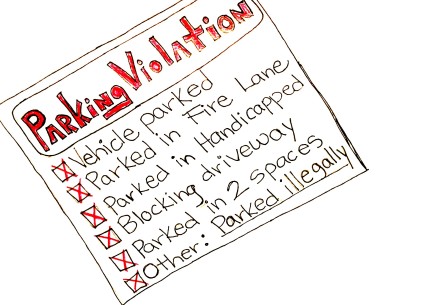 Parking Violation
Vehicle parked
Parked in Fire Lane
Parked in Handicapped
Blocking driveway
Parked in 2 spaces
Other: Parked illegally